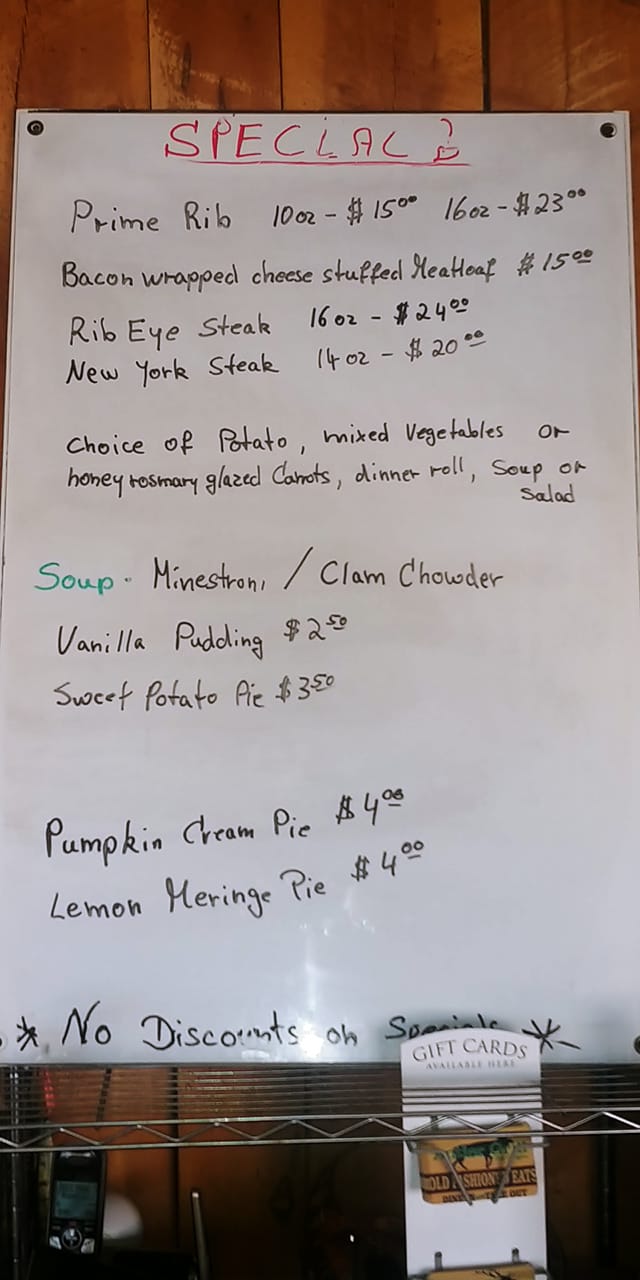 SPECIALS
Prime Rib 10oz - $15.00 16oz - $23.00
Bacon wrapped cheese stuffed Meatloaf $15.00
Rib Eye Steak 16oz - $24.00
New York Steak 14oz - $20.00
Choice of Potato, mixed Vegetables or
honey rosmary glazed Carrots, dinner roll, Soup or
Salad
Soup. Minestroni / Clam Chowder
Vanilla Pudding $2.50
Sweet Potato Pie $3.50
Pumpkin Cream Pie $4.00
Lemon Meringe Pie $4.00
* No Discounts on Specials *
GIFT CARDS
AVAILABLE HERE
OLD FASHIONED EATS